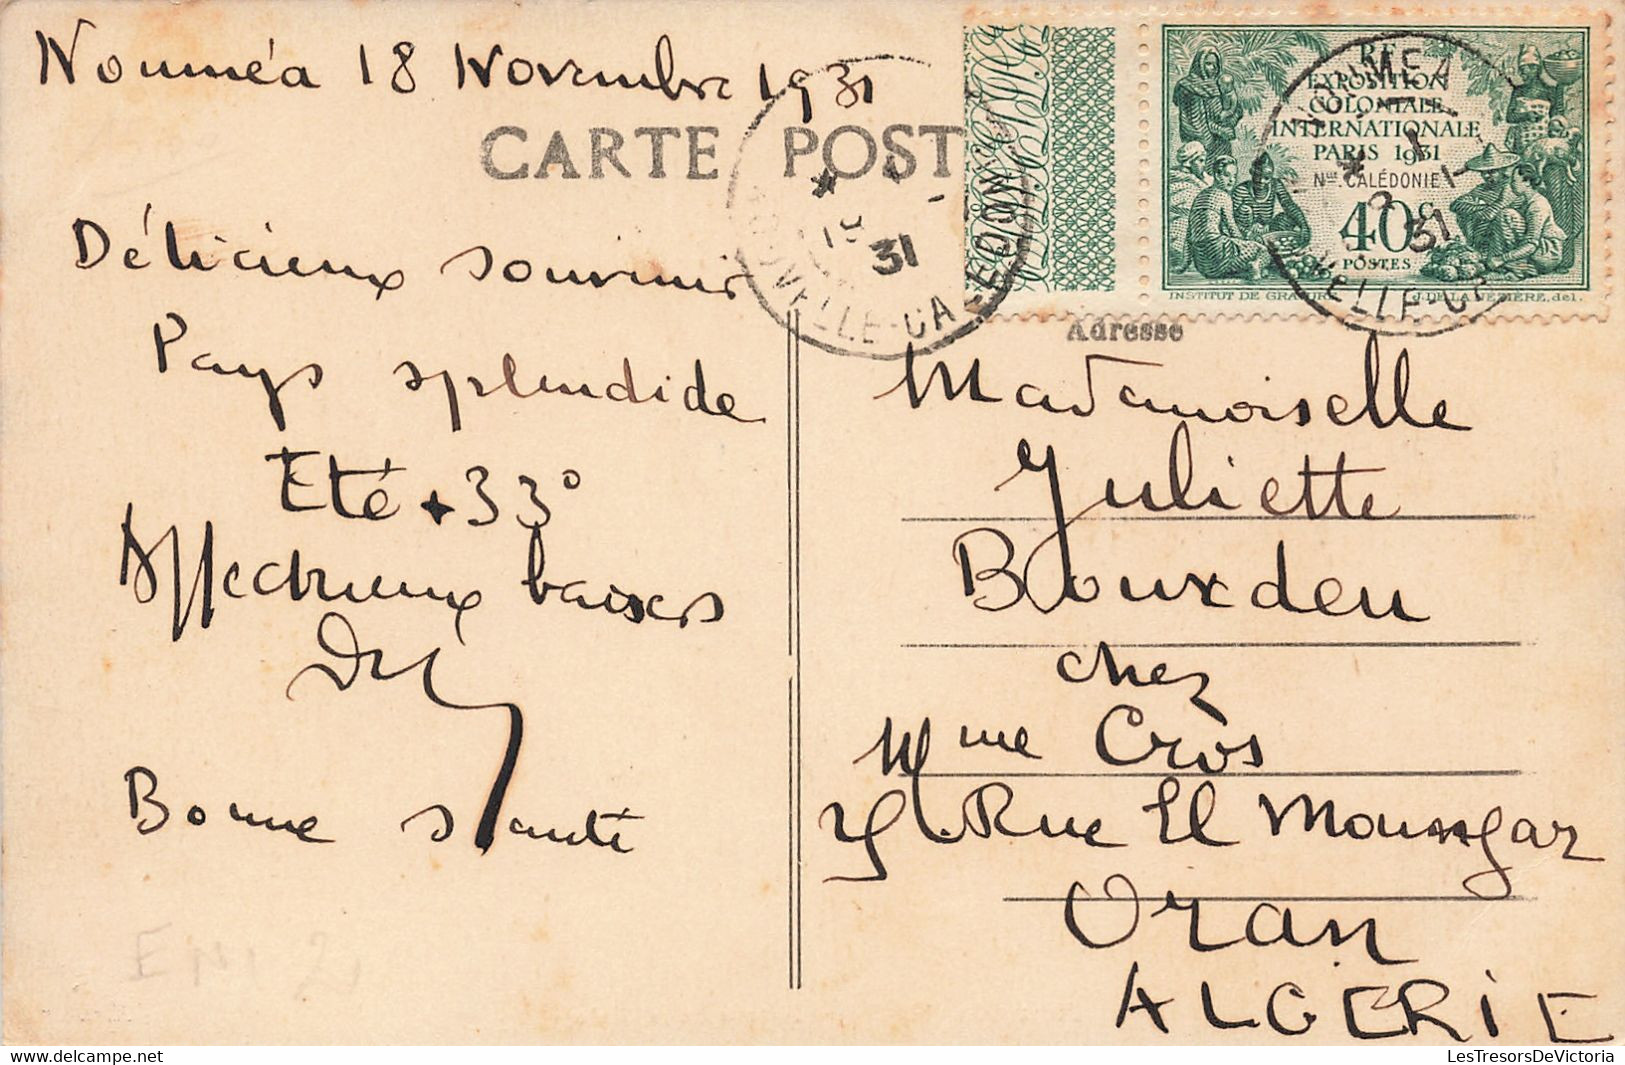 Nouméa 18 Novembre 1931
CARTE POST
Délicieux souvenir
Pays splendide
Eté +33°
Affectueux baisers
Bonne santé
RF
EXPOSITION
COLONIALE
INTERNATIONALE
PARIS 1931
Nlle. CALÉDONIE
40c
POSTES
INSTITUT DE GRAVURE
J. DE LA NÉZIÈRE, del.
NOUMEA
31
NOUVELLE-CALEDONIE
Adresse
Mademoiselle
Juliette
Bourdeu
chez
Mme Cros
Rue El Moungar
Oran
ALGERIE
LesTresorsDeVictoria